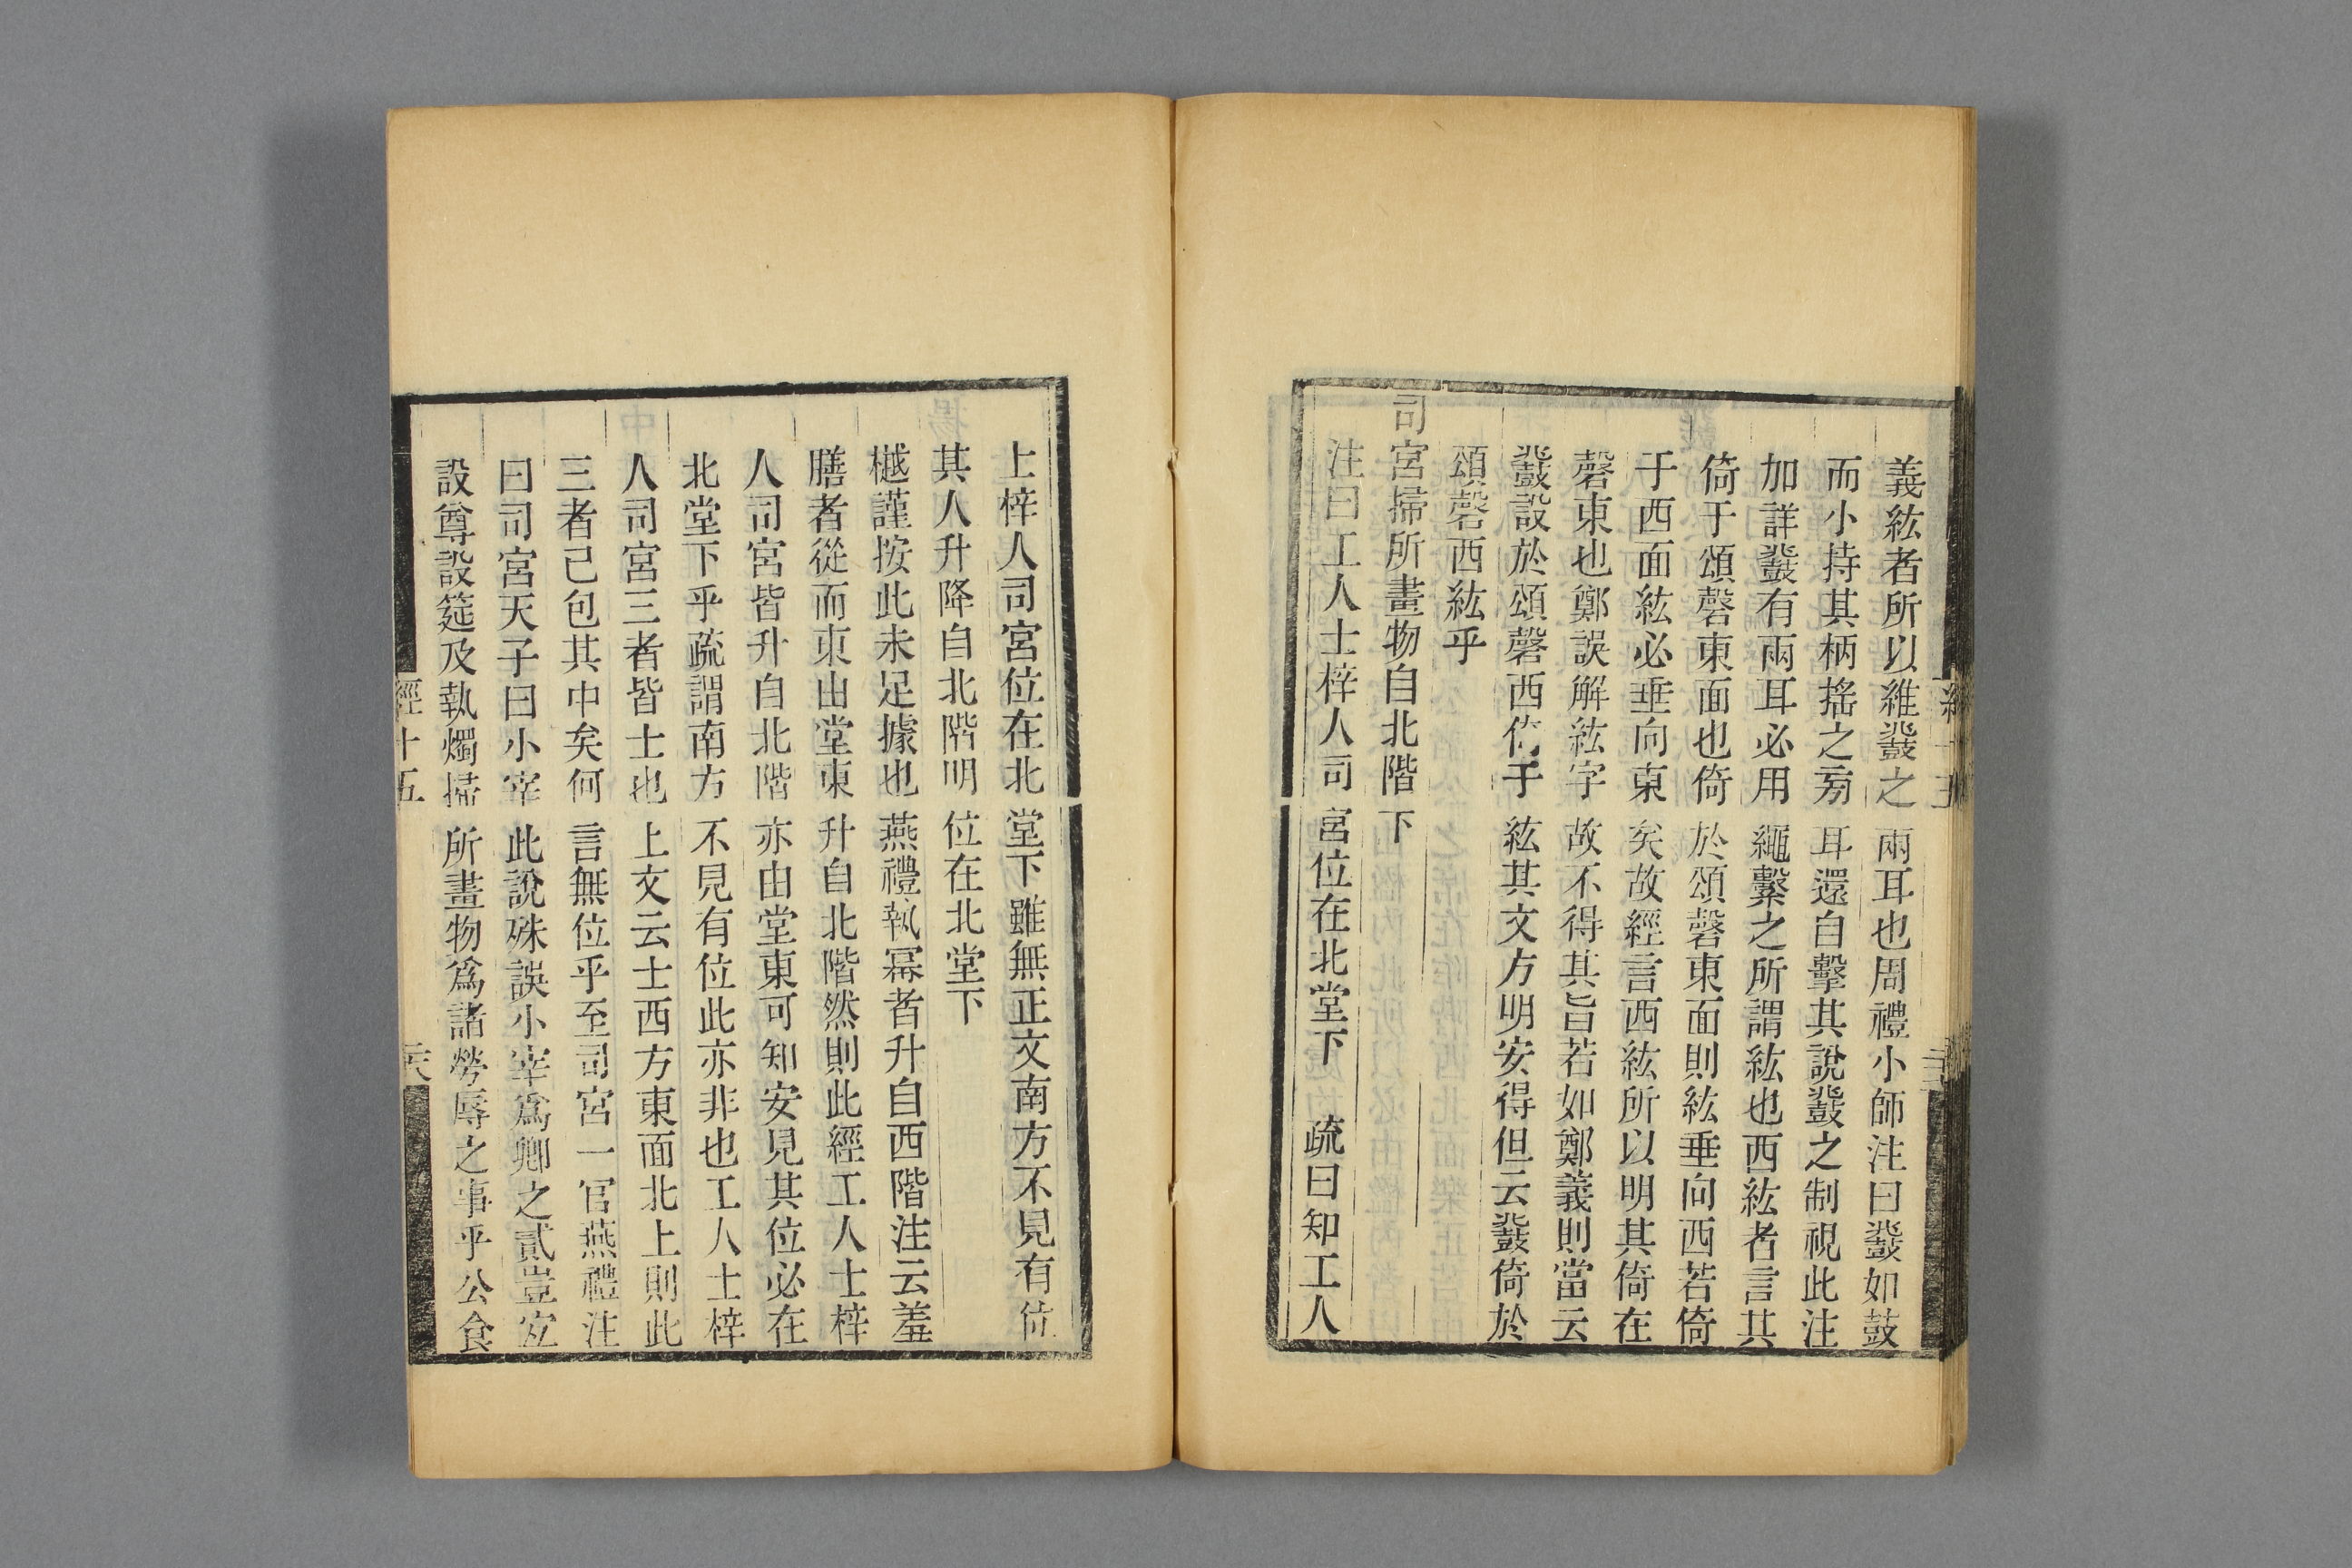 義紘者所以維鼗之兩耳也周禮小師注曰鼗如鼓
而小持其柄搖之旁耳還自擊其說鼗之制視此注
加詳鼗有兩耳必用繩繫之所謂紘也西紘者言其
倚于頌磬東面也倚於頌磬東面則紘垂向西若倚
于西面紘必垂向東矣故經言西紘所以明其倚在
磬東也鄭誤解紘字故不得其旨若如鄭義則當云
鼗設於頌磬西倚于紘其文方明安得但云鼗倚於
頌磬西紘乎
司宮掃所畫物自北階下
注曰工人士梓人司宮位在北堂下 疏曰知工人
上梓人司宮位在北堂下雖無正文南方不見有位
其人升降自北階明位在北堂下
樾謹按此未足據也燕禮執冪者升自西階注云羞
膳者從而東由堂東升自北階然則此經工人士梓
人司宮皆升自北階亦由堂東可知安見其位必在
北堂下乎疏謂南方不見有位此亦非也工人士梓
人司宮三者皆士也上文云士西方東面北上則此
三者已包其中矣何言無位乎至司宮一官燕禮注
曰司宮天子曰小宰此說殊誤小宰爲卿之貳豈宜
設尊設筵及執燭掃所畫物爲諸勞辱之事乎公食
經十五
六